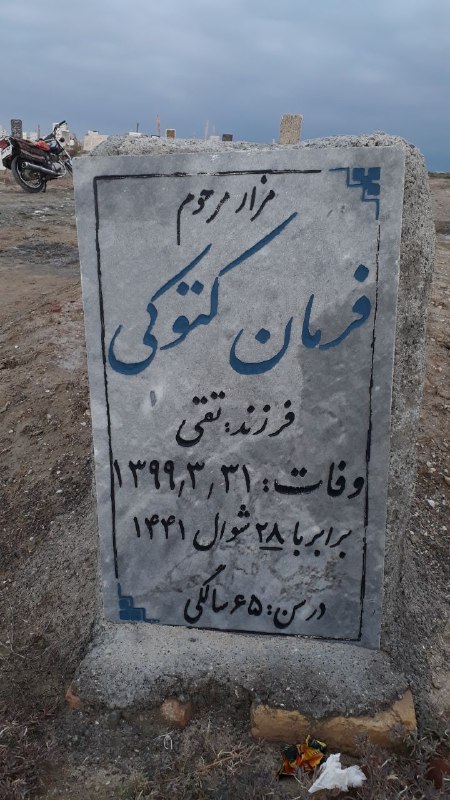 مزار مرحوم
فرمان کتوکی
فرزند: تقی
وفات: ۱۳۹۹٫۳٫۳۱
برابر با ۲۸ شوال ۱۴۴۱
در سن: ۶۵ سالگی